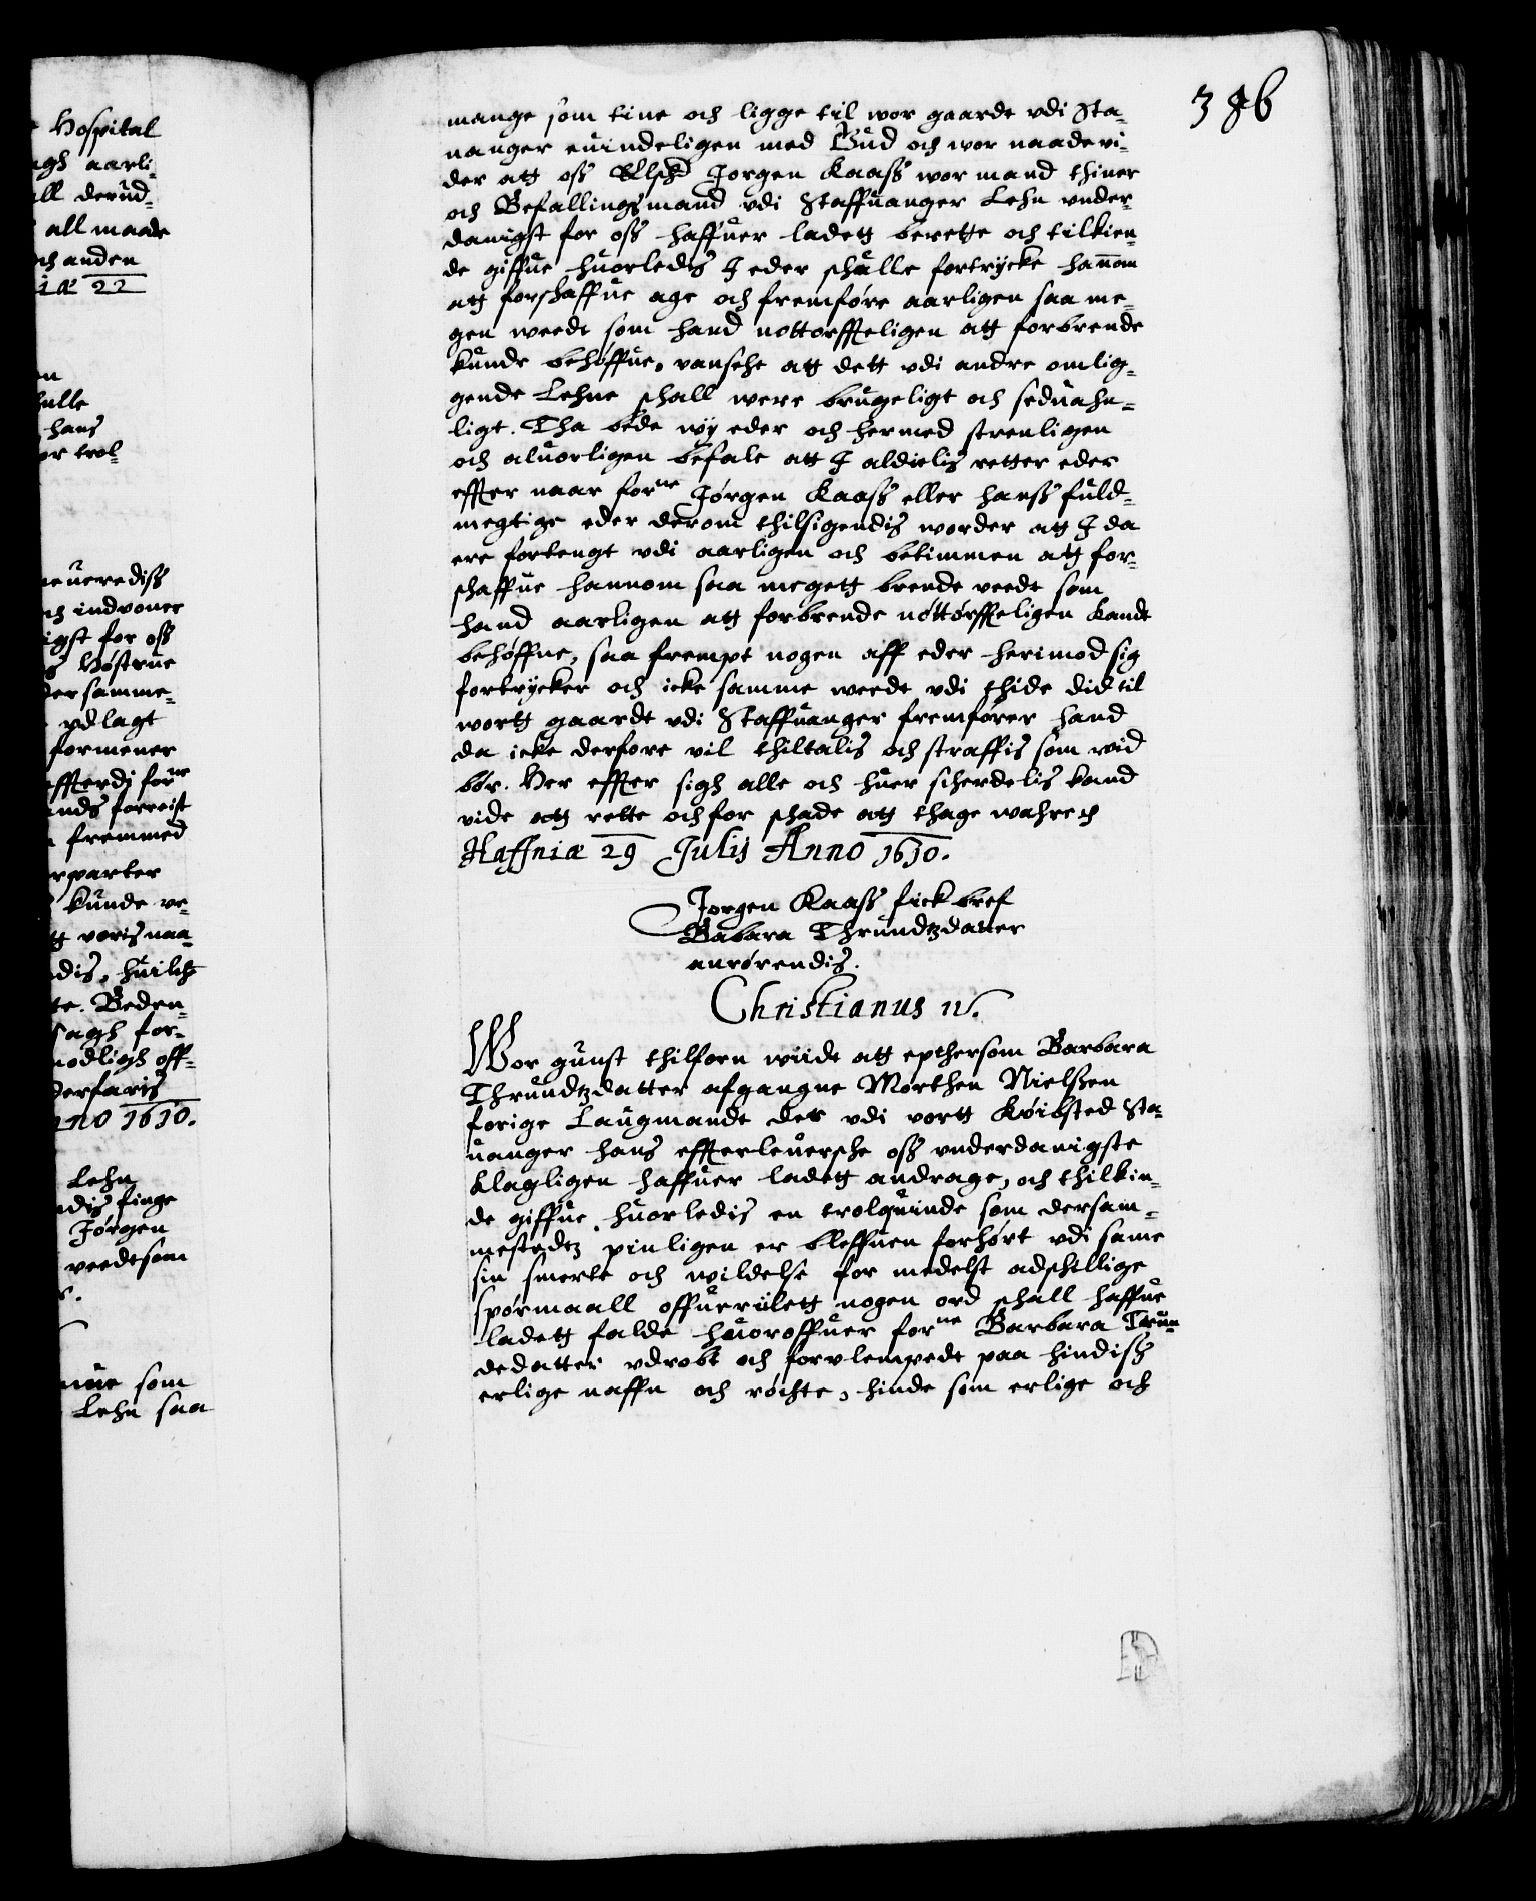 386
Hospital
ngh aarli-
all derud-
all maade
och anden
iæ 22
en
hulle
hans
or trol-
neuerediss
och induoner
igst for oss
Høstrue
dersamme-
ydlagt
formener
effterdj forne
lands forreist
fremmed
erparter
kunde ve-
voris naa-
dis, huilch
te. Beden-
sagh for-
modligh off-
derfaris
Anno 1610.
Lehn
ndis finge
Jørgen
veedt som
nue som
Lehn saa
mange som tine och ligge til wor gaarde vdi Sta-
uanger euindeligen med Gud och wor naade vi-
der att oss Elsch Jorgen Kaass wor mand thiner
och Befallingsmand vdi Staffuanger Lehn vnder-
danigst for oss haffuer ladett berette och tilkien-
de giffue huorledis I eder schulle fortrycke hannom
att forschaffue age och fremføre aarligen saa me-
gen weede som hand nottorffteligen att forbrende
kunde behøffue, vansehe att dett vdi andre omlig-
gende Lehne schall were brugeligt och seduahn-
ligt. Tha bede wy eder och hermed strenligen
och aluorligen befale att I aldielis retter eder
effter naar forne Jørgen Kaass eller hanss fuld-
megtige eder derom thilsigendis worder att I da
ere fortengt vdi aarligen och betimmen att for-
schaffue hannom saa megett brende veede som
hand aarligen att forbrende nøttørffteligen kande
behøffue, saa frempt nogen aff eder herimod sig
fortrycker och icke samme weede vdi thide did til
wortt gaarde vdi Staffuanger fremfører hand
da icke derfore vil thiltalis och straffis som wid
bør. Her effter sigh alle och huer scherdelis kand
vide att rette och for schade att thage wahre
Haffniæ 29 Julij Anno 1610.
Jorgen Kaass fick bref
Babara Thrundtzdatter
anrørendis.
Christianus IV.
Wor gunst thilforn wiide att epthersom Barbara
Thrundtzdatter afgangne Morthen Nielssen
forige Laugmande der vdi vortt Køibsted Sta-
uanger hans effterleuersche oss vnderdanigste
klagligen haffuer ladett andrage, och thilkin-
de giffue, huorledis en trolquinde som dersam-
mestedtz pinligen er bleffuen forhørt vdi same
sin smerte och wildelse for medelst adschellige
spørmaall offueriilett nogen ord schall haffue
ladett falde huoroffuer forne Barbara Trun-
dedatter vdrobt och forulempede paa hindiss
erlige naffn och røchte, hinde som erlige och